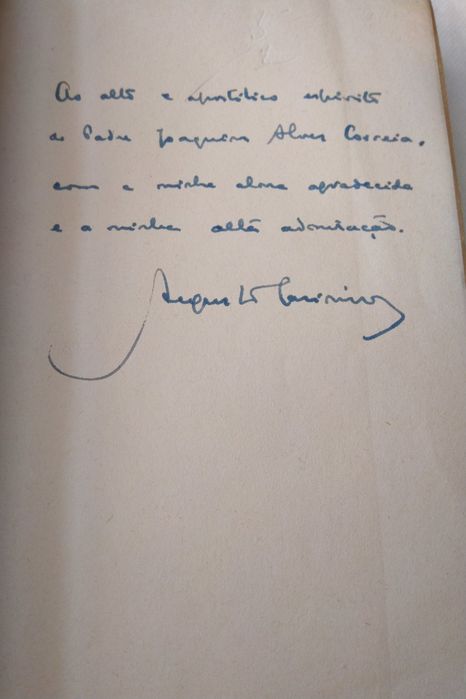 Ao alto e apostólico espírito
do Padre Joaquim Alves Correia,
com a minha alma agradecida
e a minha alta admiração.
Augusto Casimiro